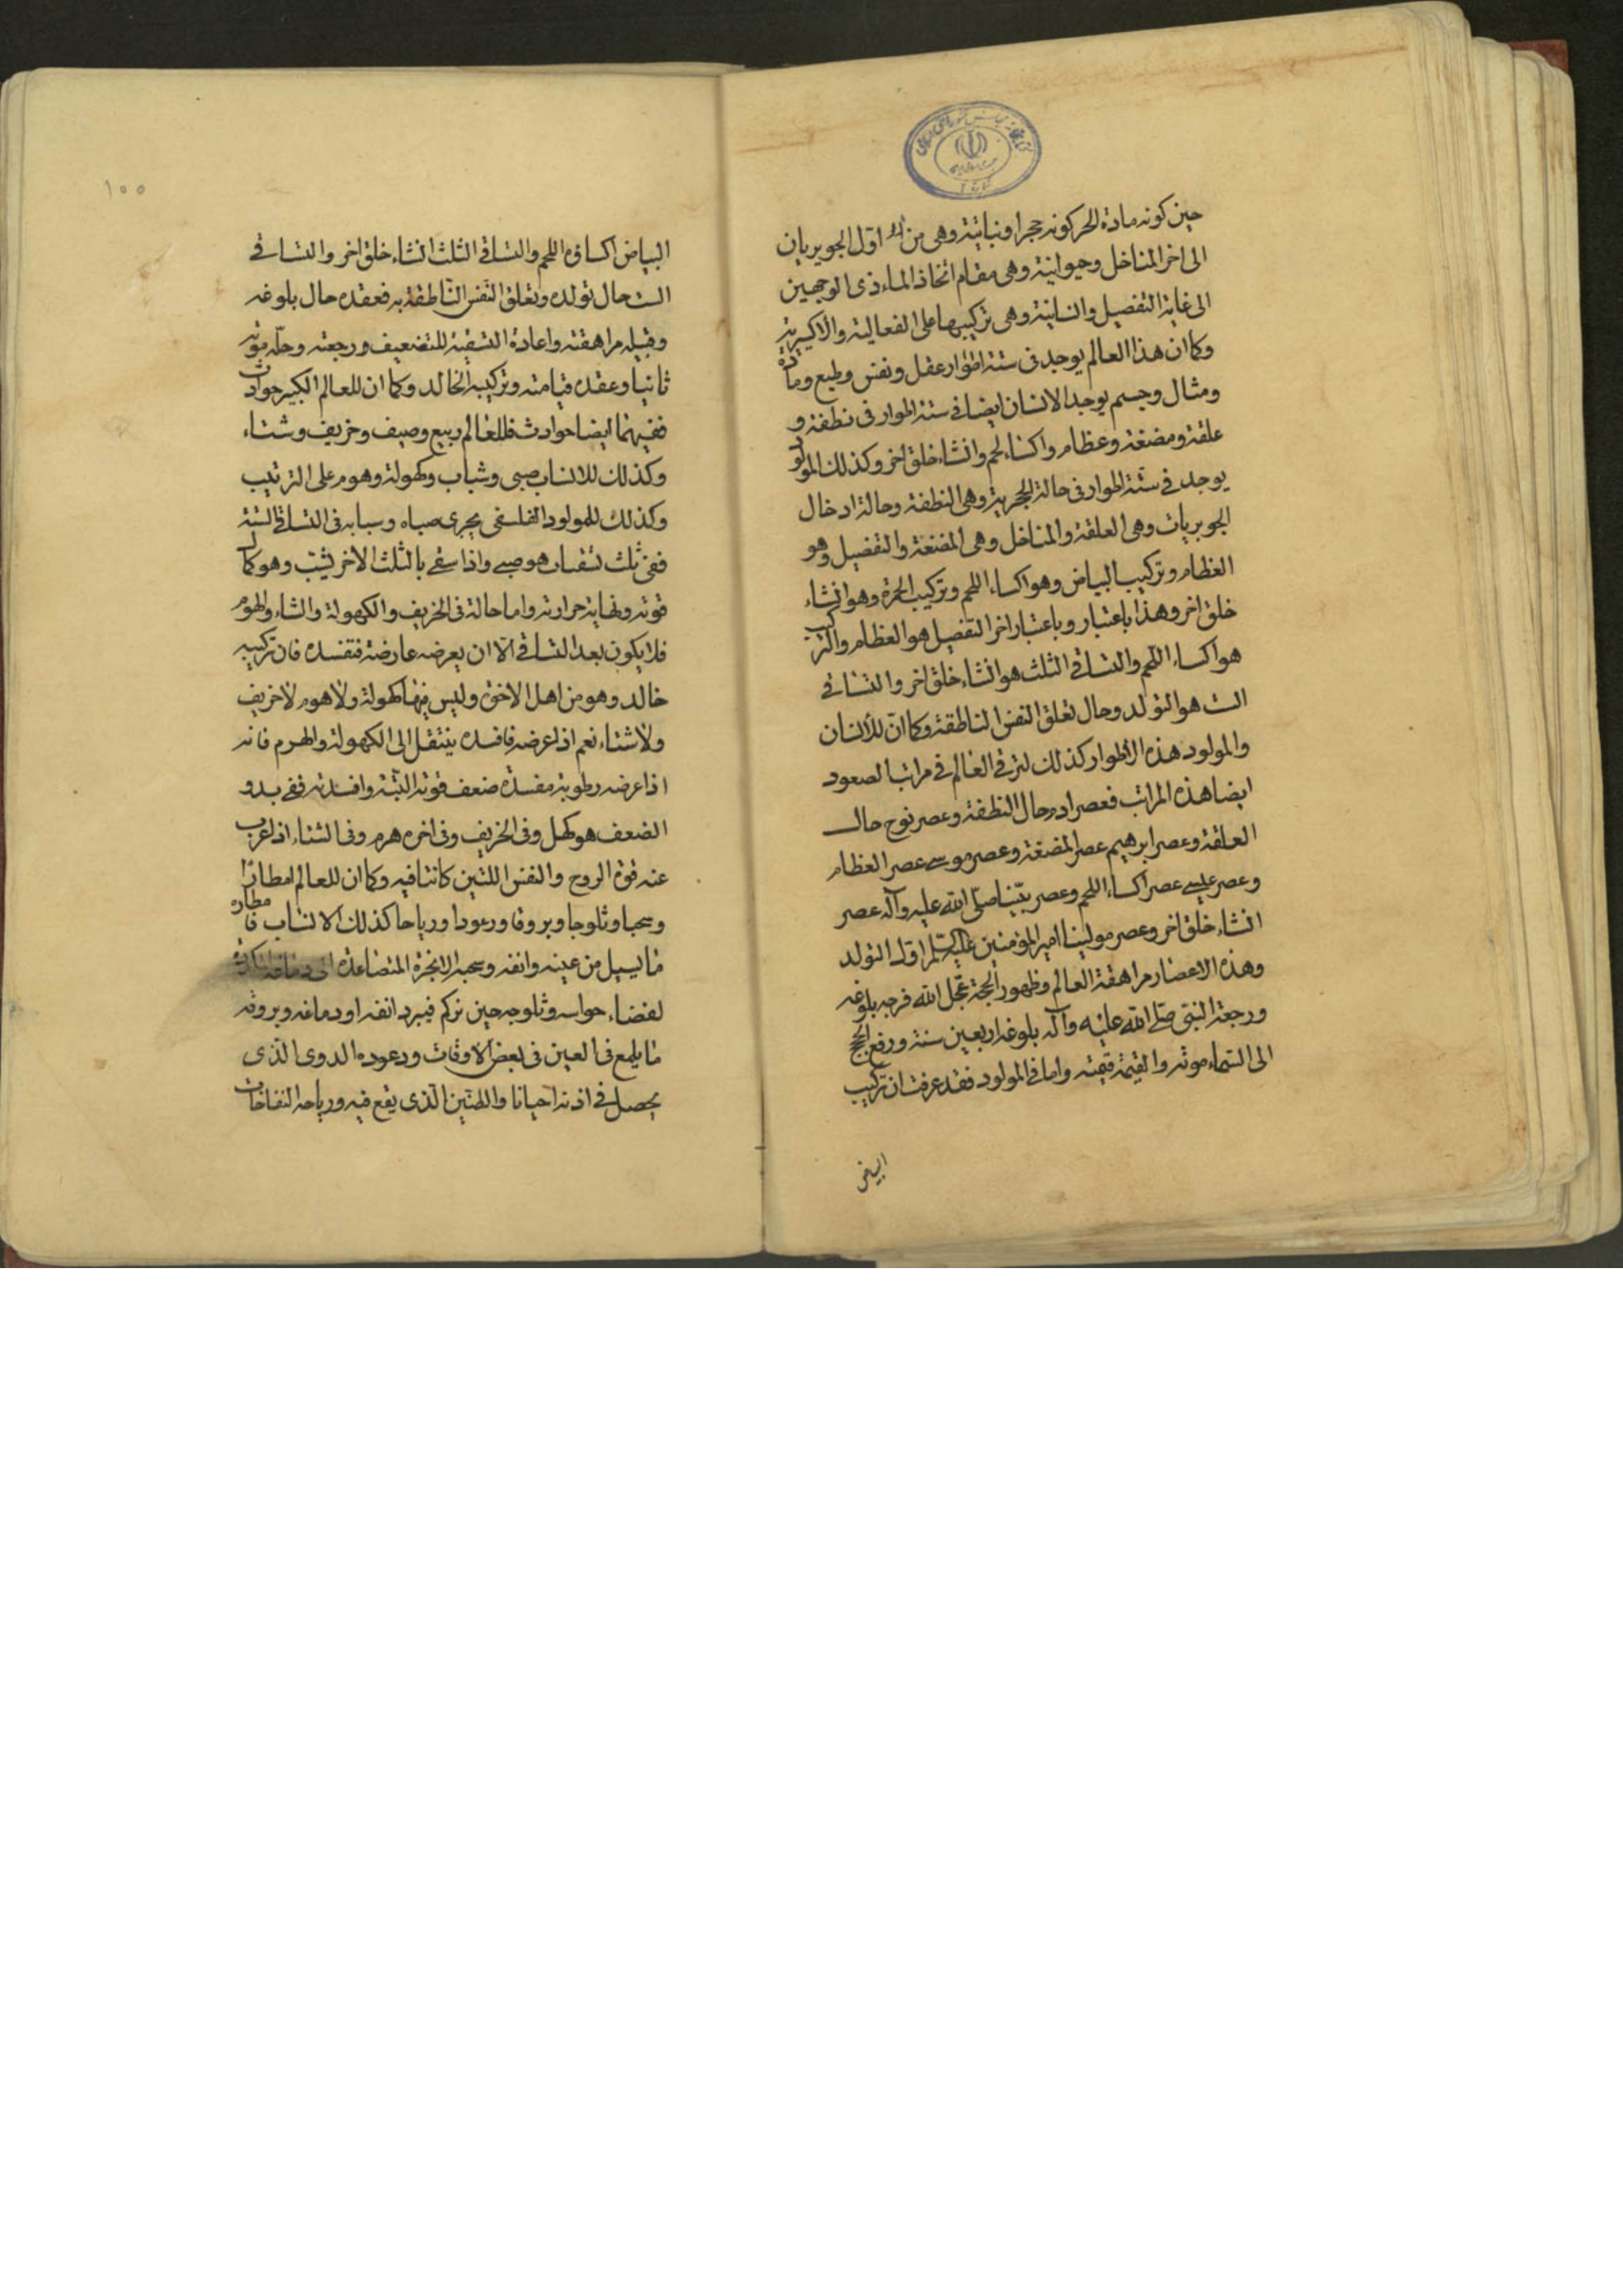 حين كونه مادة الحر كونه حجرا ونباتية وهى من اول الجويريان
الى اخر المناخل وحيوانية وهى مقام اتخاذ الماء ذى الوجهين
الى غاية التفصيل وانسانية وهى تركيبها على الفعالية والاكسيرية
وكما ان هذا العالم يوجد فى ستة اطوار عقل ونفس وطبع ومادة
ومثال وجسم يوجد الانسان ايضا فى ستة اطوار فى نطفة و
علقة ومضغة وعظام واكساء لحم وانشاء خلق اخر وكذلك المولود
يوجد فى ستة اطوار فى حالة الحجرية وهى النطفة وحالة ادخال
الجويريات وهى العلقة والمناخل وهى المضغة والتفصيل وهو
العظام وتركيب البياض وهو اكساء اللحم وتركيب الحمرة وهو انشاء
خلق اخر وهذا باعتبار وباعتبار اخر التفصيل هو العظام والتركيب
هو اكساء اللحم والتساقى الثلث هو انشاء خلق اخر والتساقى
الست هو التولد وحال تعلق النفس الناطقة وكما ان للانسان
والمولود هذه الاطوار كذلك لترقى العالم فى مراتب الصعود
ايضا هذه المراتب فعصر ادم حال النطفة وعصر نوح حال
العلقة وعصر ابرهيم عصر المضغة وعصر موسى عصر العظام
وعصر عيسى عصر اكساء اللحم وعصر نبينا صلى الله عليه وآله عصر
انشاء خلق اخر وعصر مولينا امير المؤمنين عليه السلام اول التولد
وهذه الاعصار مراهقة العالم وظهور الحجة عجل الله فرجه بلوغه
ورجعة النبى صلى الله عليه وآله بلوغه اربعين سنة ورفع الحجج
الى السماء موته والقيمة قيمته واما فى المولود فقد عرفت ان تركيب
البياض
١٠٠
البياض اكساؤه اللحم والتساقى الثلث انشاء خلق اخر والتساقى
الست حال تولده وتعلق النفس الناطقة به فعقده حال بلوغه
وقبله مراهقته واعادة التسقية للتضعيف ورجعته وحله موته
ثانيا وعقده قيامته وتركيبه الخالد وكما ان للعالم الكبير حوادث
ففيهما ايضا حوادث فللعالم ربيع وصيف وخريف وشتاء
وكذلك للانسان صبى وشباب وكهولة وهرم على الترتيب
وكذلك للمولود الفلسفى يجرى صباه وسبابه فى التساقى الستة
ففى ثلث تسقيات هو صبى واذا سقى بالثلث الاخر يشبّ وهو كمال
قوته ونهاية حرارته واما حالة فى الخريف والكهولة والشتاء والهرم
فلا يكون بعد التساقى الا ان يعرضه عارضة فتفسده فان تركيبه
خالد وهو من اهل الاخرة وليس فيها كهولة ولا هرم لا خريف
ولا شتاء نعم اذا عرضه فافسده ينتقل الى الكهولة والهرم فانه
اذا عرضه رطوبة مفسدة ضعف قوته البتة وافسدته ففى بدو
الضعف هو كهل وفى الخريف وفى اخره هرم وفى الشتاء اذا عزب
عنه قوة الروح والنفس اللتين كانتا فيه وكما ان للعالم امطارا
وسحبا وثلوجا وبروقا ورعودا ورياحا كذلك الانسان فامطاره
ما يسيل من عينه وانفه وسحبه الابخرة المتصاعدة الى دماغه
لفضاء حواسه وثلوجه حين نزكم فيبرد انفه او دماغه وبروقه
ما يلمع فى العين فى بعض الاوقات ورعوده الدوى الذى
يحصل فى اذنه احيانا والطنين الذى يقع فيه ورياحه النفاخات